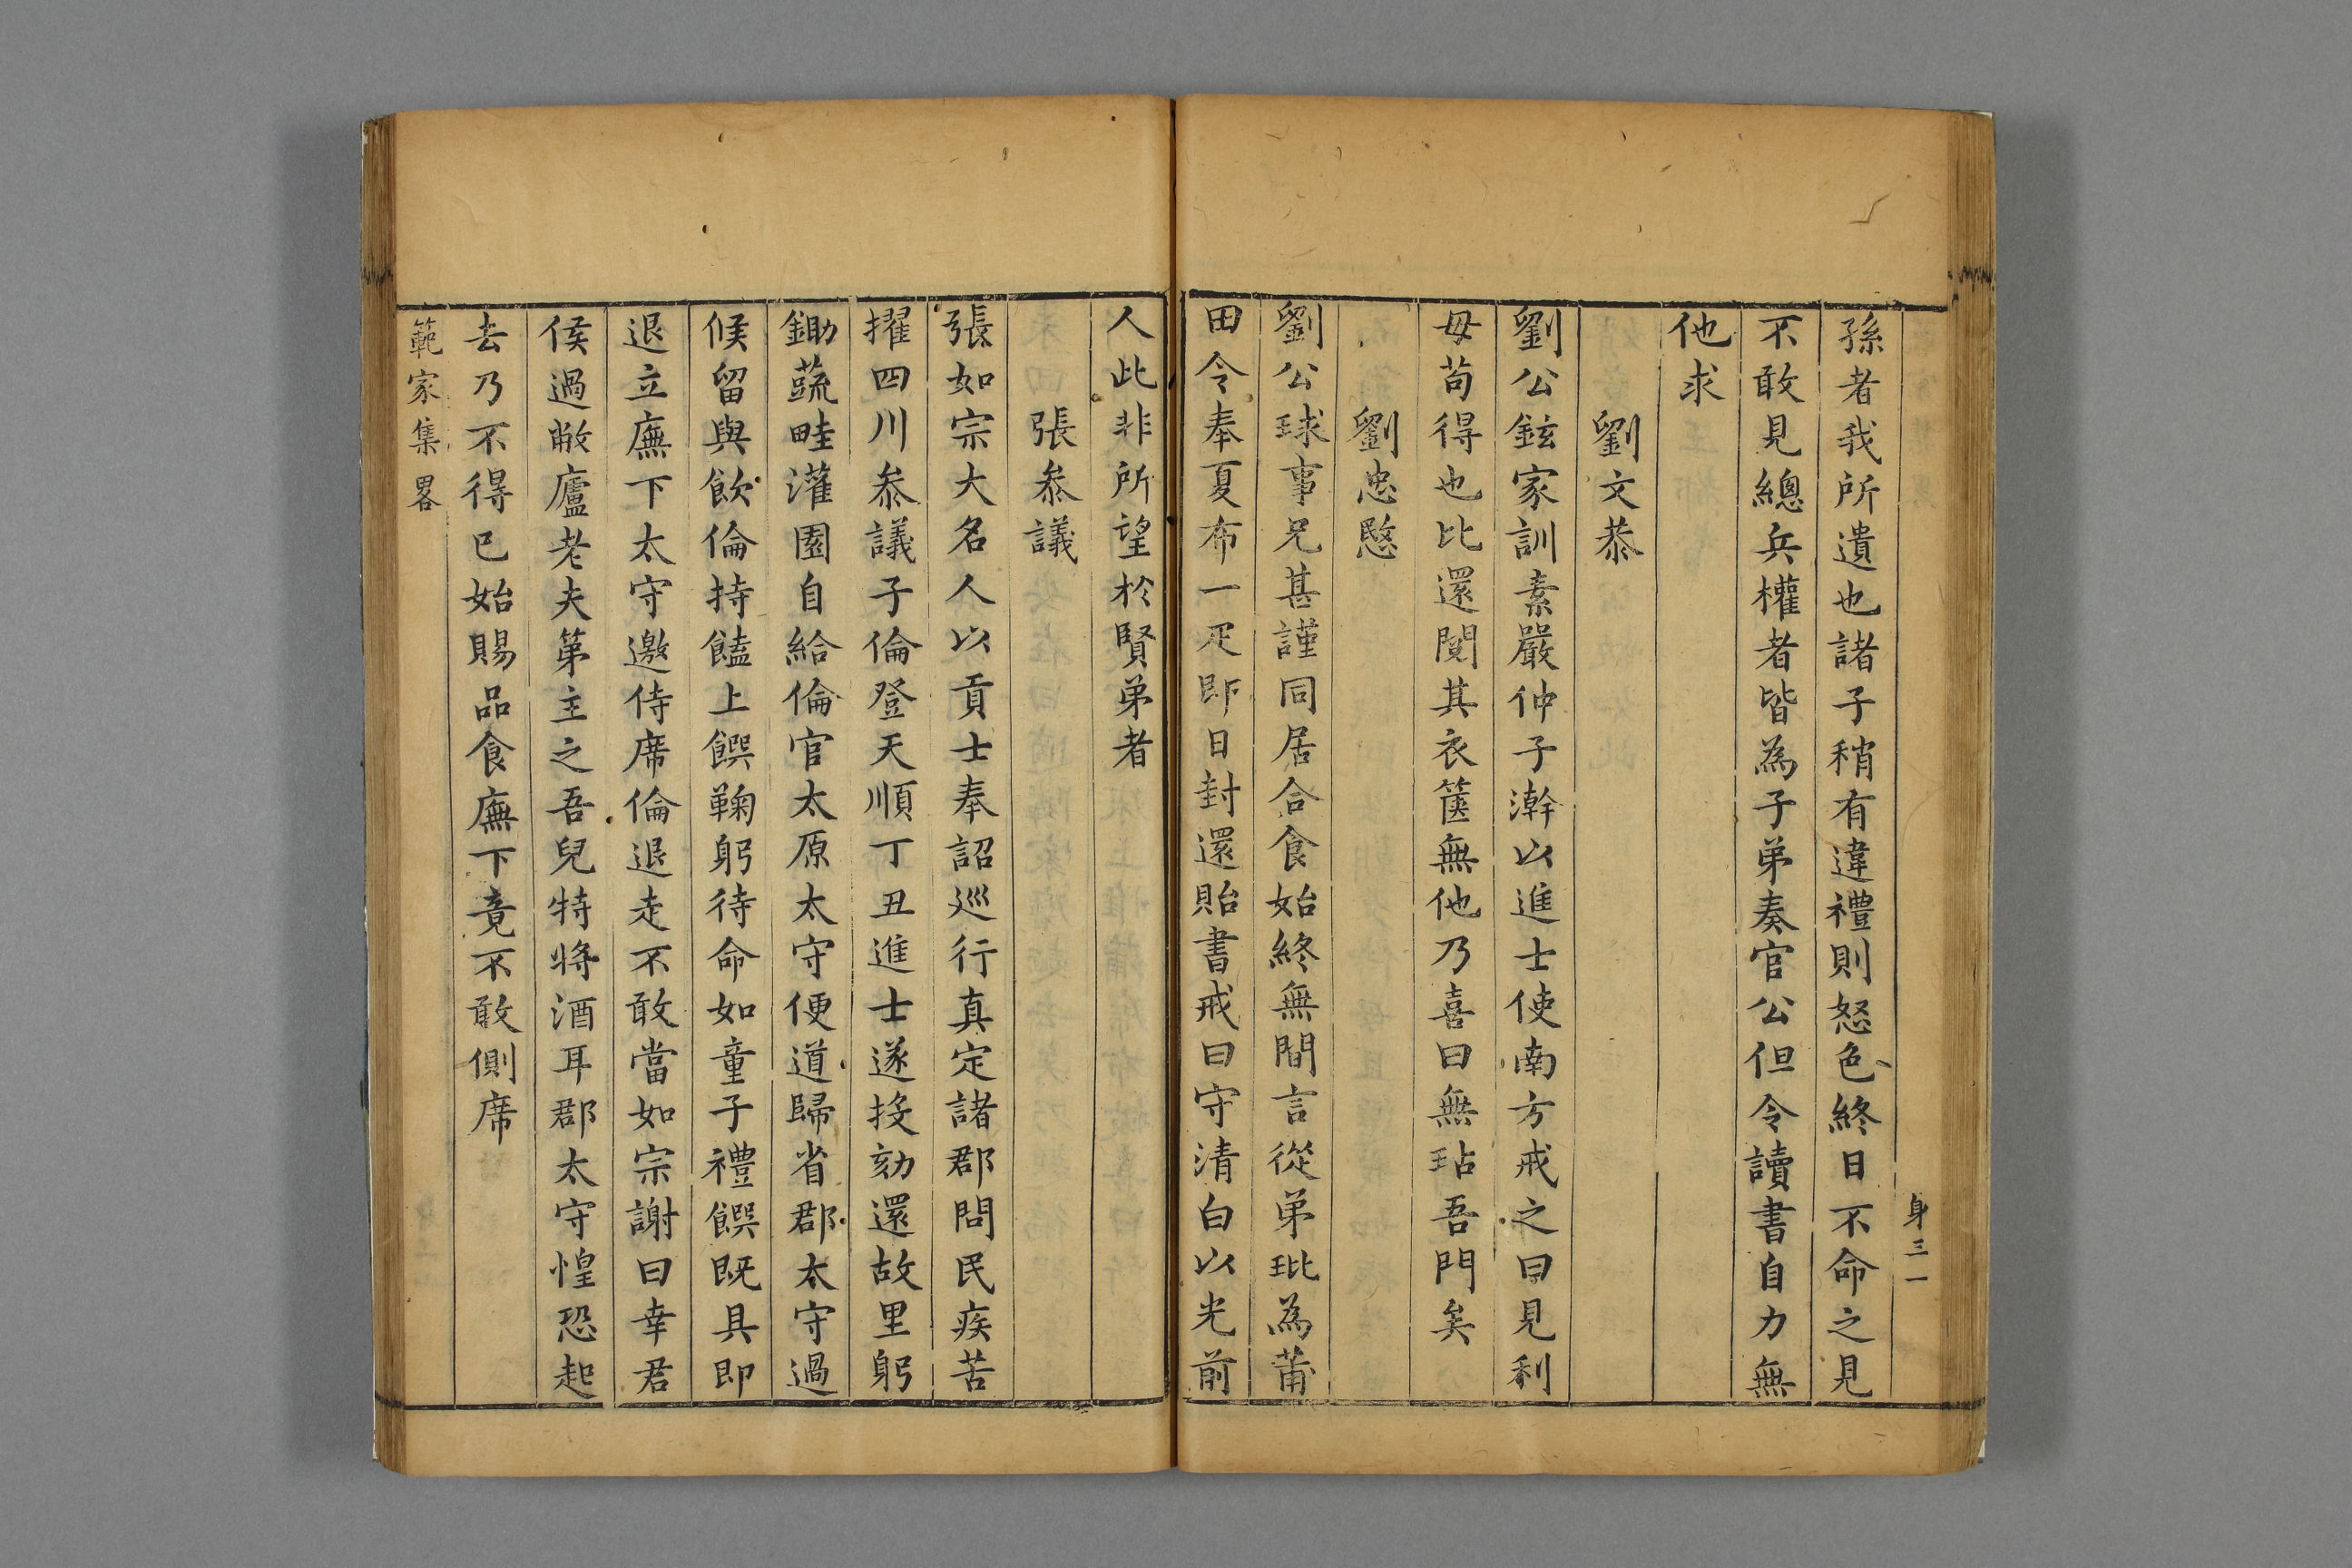 孫者我所遺也諸子稍有違禮則怒色終日不命之見
不敢見總兵權者皆為子弟奏官公但令讀書自力無
他求
劉文恭
劉公鉉家訓素嚴仲子瀚以進士使南方戒之曰見利
毋苟得也比還閱其衣篋無他乃喜曰無玷吾門矣
劉忠愍
劉公球事兄甚謹同居合食始終無間言從弟玭為莆
田令奉夏布一疋即日封還貽書戒曰守清白以光前
身三一
人此非所望於賢弟者
張叅議
張如宗大名人以貢士奉詔巡行真定諸郡問民疾苦
擢四川叅議子倫登天順丁丑進士遂投劾還故里躬
鋤蔬畦灌園自給倫官太原太守便道歸省郡太守過
候留與飲倫持饁上饌鞠躬待命如童子禮饌既具即
退立廡下太守邀侍席倫退走不敢當如宗謝曰幸君
侯過敝廬老夫第主之吾兒特將酒耳郡太守惶恐起
去乃不得已始賜品食廡下竟不敢側席
範家集畧